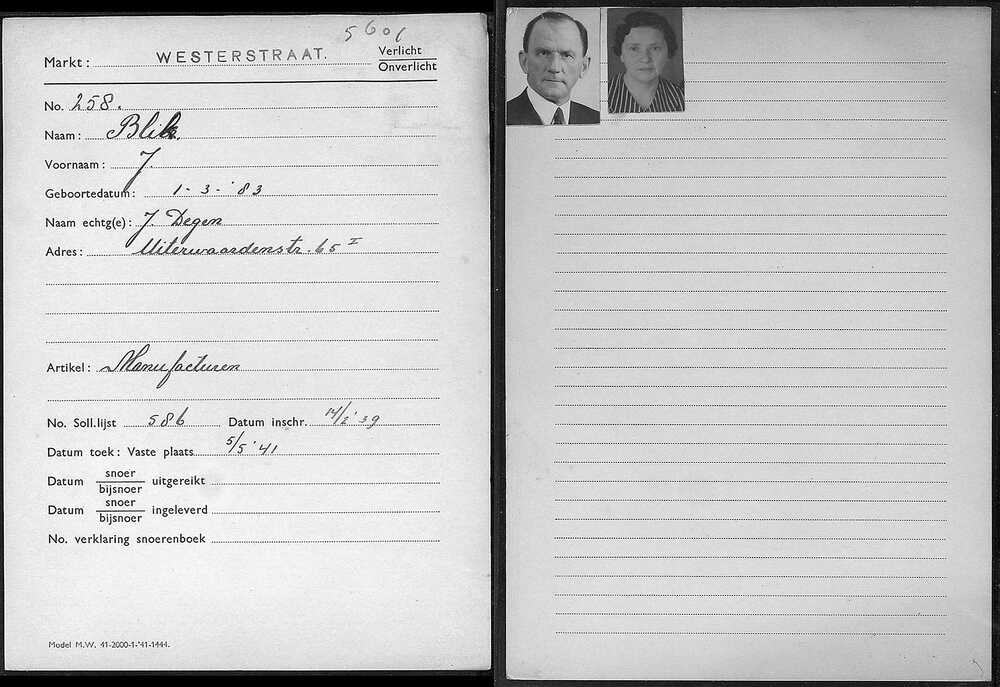 5601
Markt: WESTERSTRAAT. Verlicht
Onverlicht
No. 258.
Naam: Blik.
Voornaam: J.
Geboortedatum: 1-3-'83
Naam echtg(e): J. Degen
Adres: Uiterwaardenstr. 65 I
Artikel: Manufacturen
No. Soll.lijst 586 Datum inschr. 14/2 '39
Datum toek: Vaste plaats 5/5 '41
Datum snoer
bijsnoer uitgereikt
Datum snoer
bijsnoer ingeleverd
No. verklaring snoerenboek
Model M.W. 41-2000-1-'41-1444.